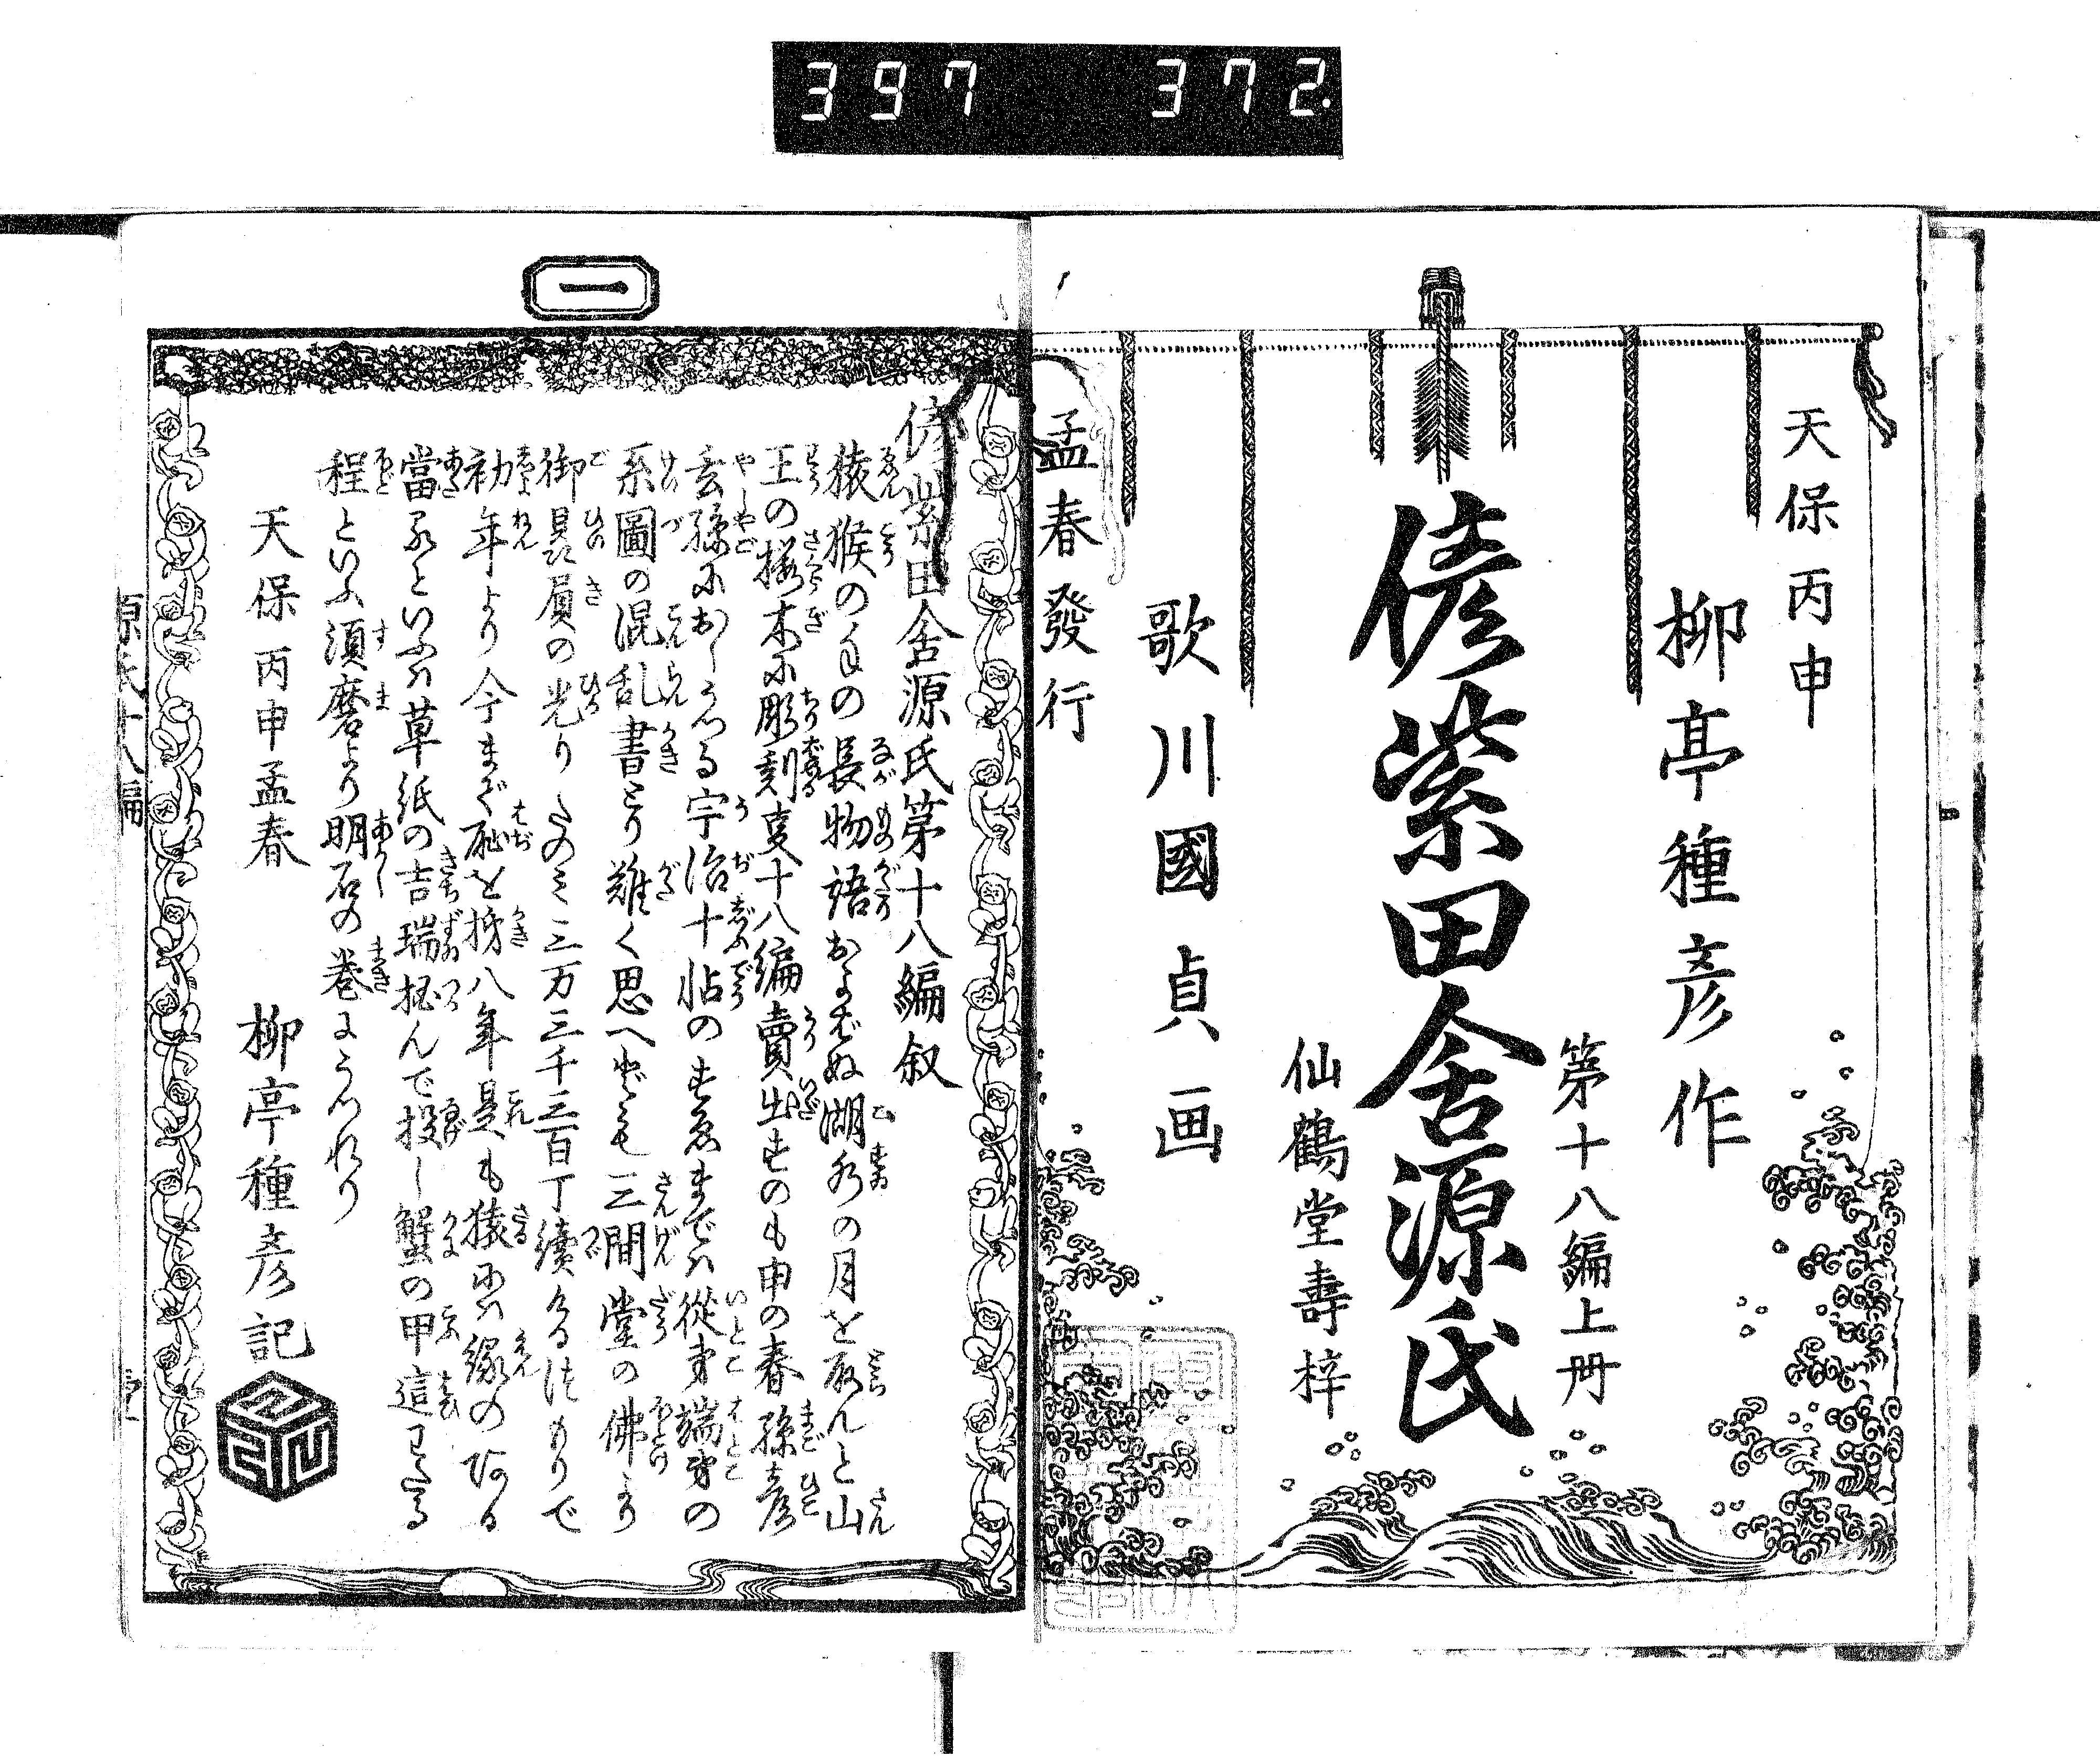 397 372.
天保丙申
柳亭種彦作
第十八編上册
偐紫田舎源氏
仙鶴堂壽梓
歌川國貞画
孟春發行
一
偐紫田舎源氏第十八編叙
猿猴の手の長物語およばぬ湖水の月を取んと山
王の桜木に彫刻直十八編賣出すのも申の春孫彦
玄孫におしうつる宇治十帖のすゑまでハ従弟端弟の
系圖の混乱書とり難く思へども三間堂の佛より
御贔屓の光りたのミ三万三千三百丁續くるつもりで
初年より今まで恥を掻八年是も猿にハ縁のある
當るといふハ草紙の吉瑞柿んで投し蟹の甲這わたる
程といふ須磨より明石の巻にうつれり
天保丙申孟春
柳亭種彦記
源氏十八編